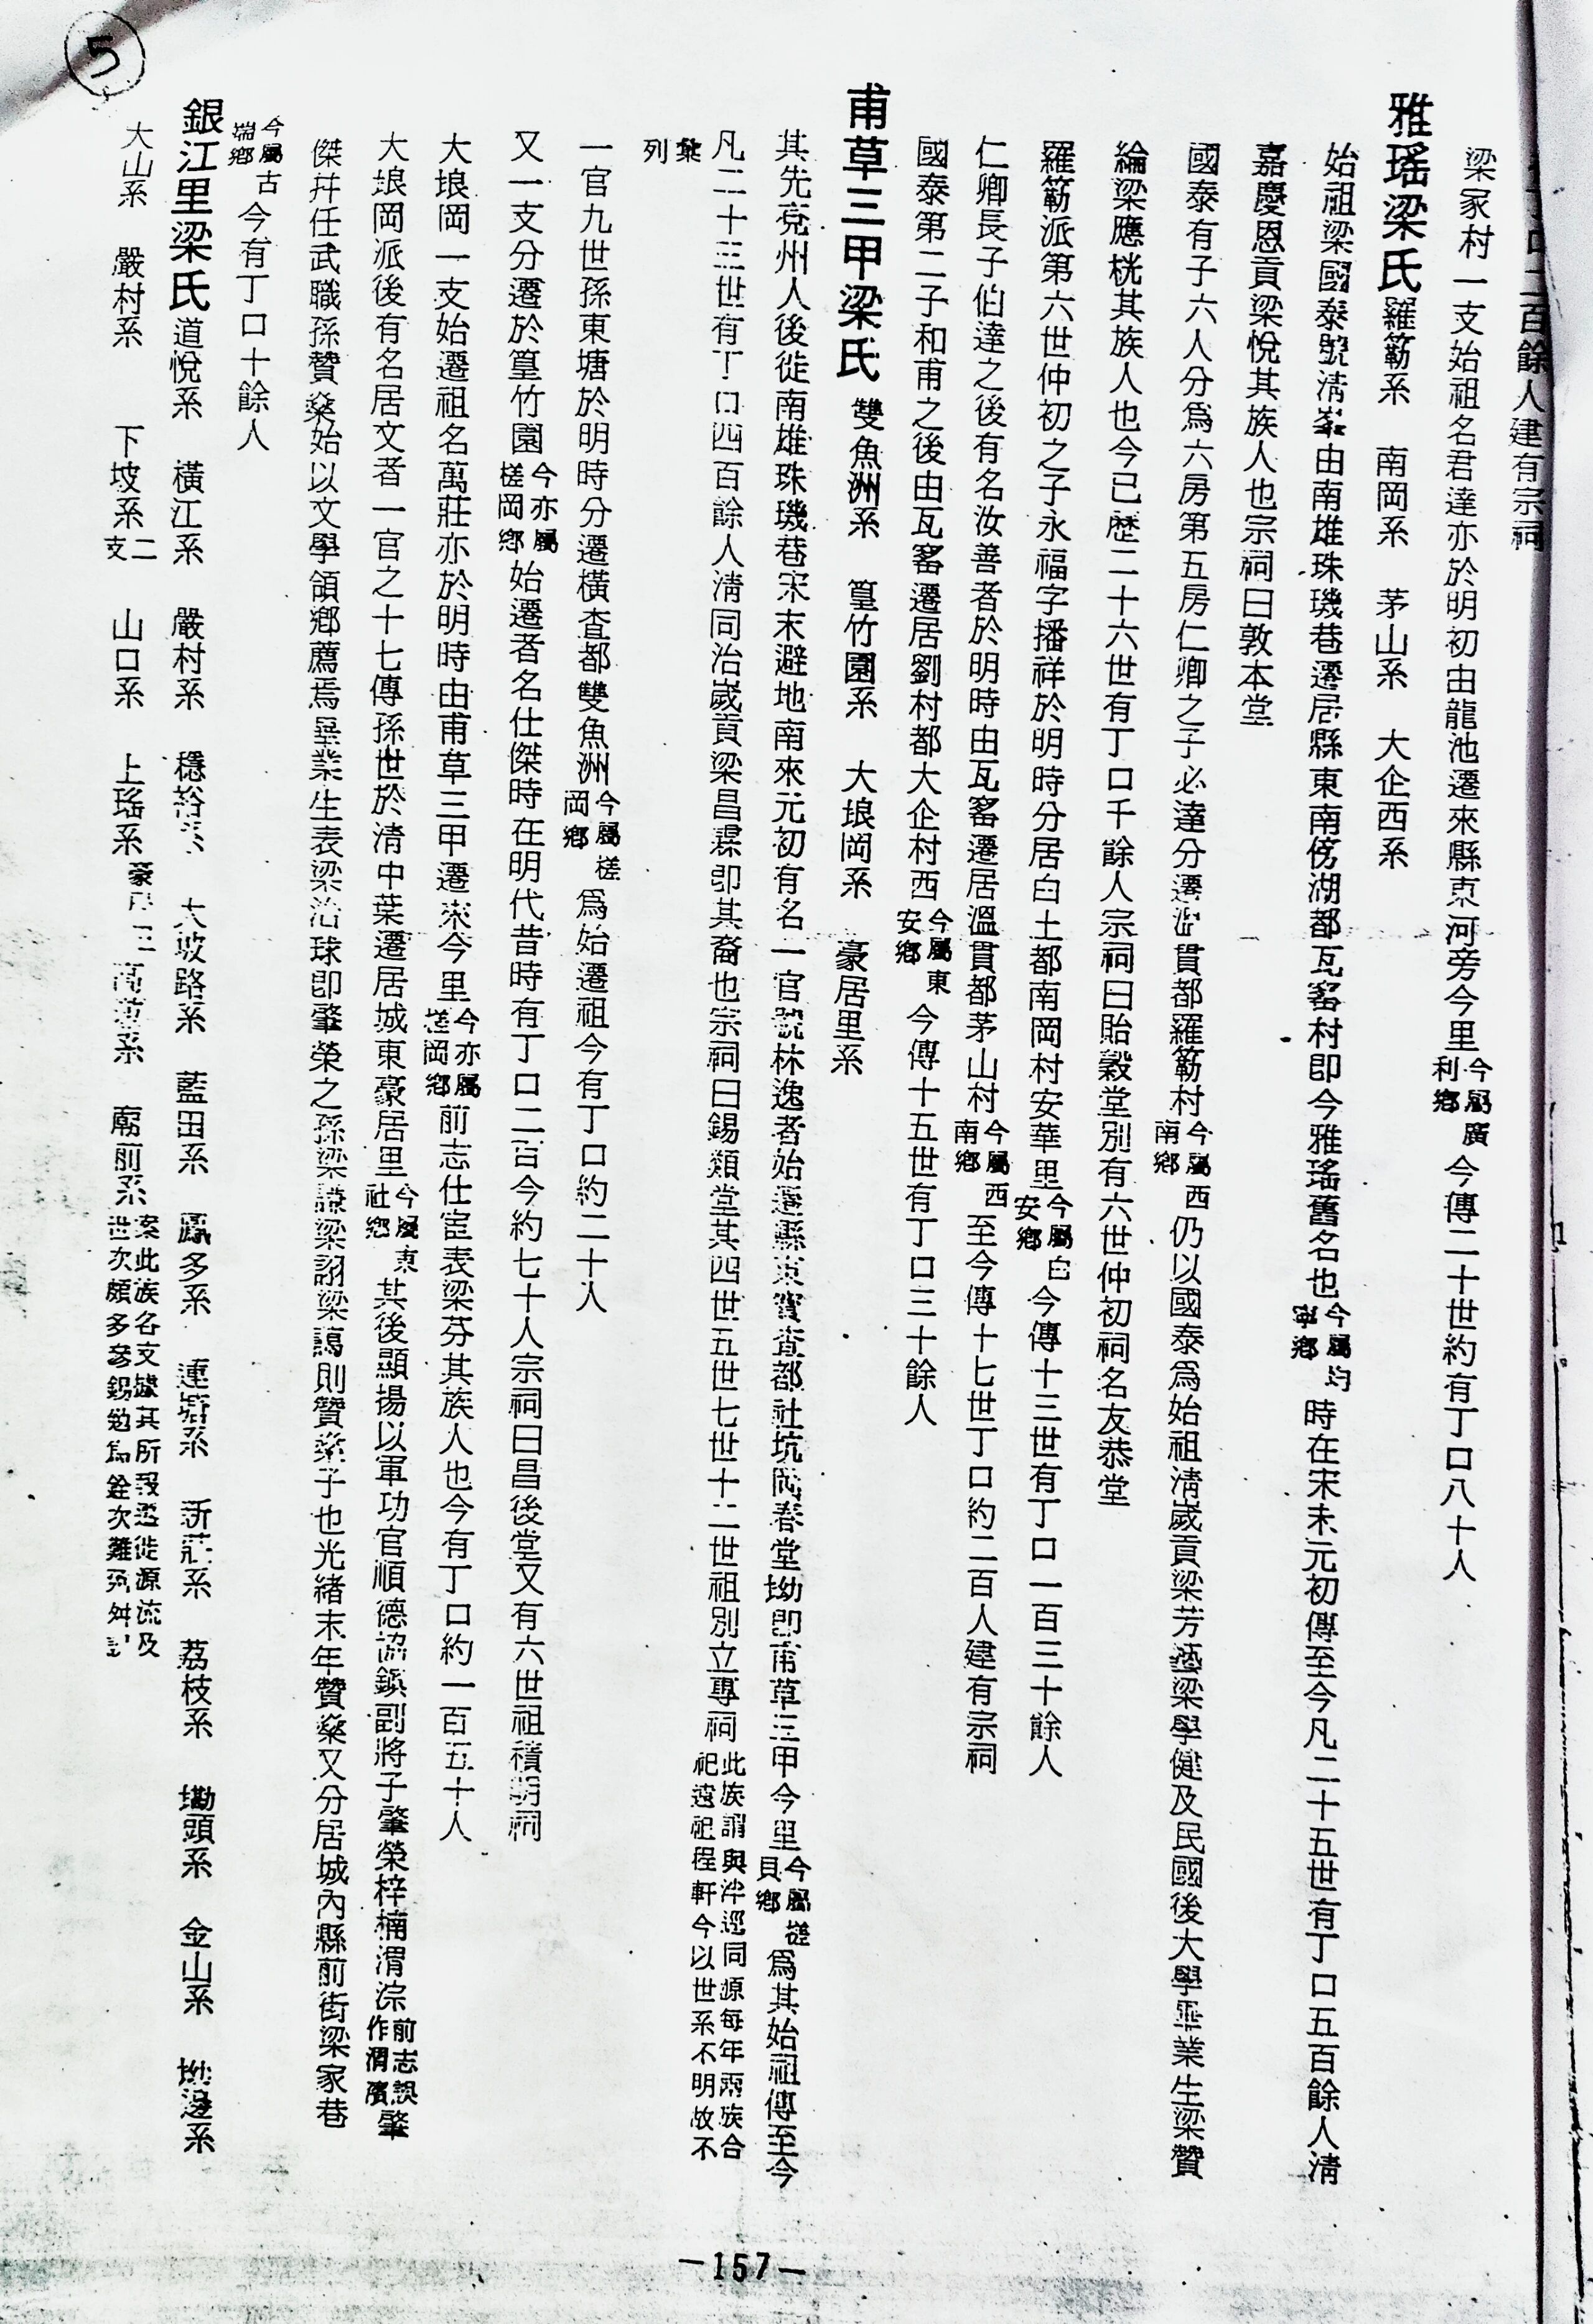 百餘人建有宗祠
梁家村一支始祖名君達亦於明初由龍池遷來縣東河旁今里今屬廣利鄉今傳二十世約有丁口八十人
雅瑤梁氏 羅簕系 南岡系 茅山系 大企西系
始祖梁國泰號淸峯由南雄珠璣巷遷居縣東南傍湖都瓦窰村即今雅瑤舊名也今屬均寧鄉時在宋末元初傳至今凡二十五世有丁口五百餘人淸
嘉慶恩貢梁悅其族人也宗祠曰敦本堂
國泰有子六人分爲六房第五房仁卿之子必達分遷貫都羅簕村今屬西南鄉仍以國泰爲始祖淸嵗貢梁芳梁學健及民國後大學畢業生梁贊
綸梁應桄其族人也今已歷二十六世有丁口千餘人宗祠曰貽穀堂別有六世仲初祠名友恭堂
羅簕派第六世仲初之子永福字播祥於明時分居白土都南岡村安華里今屬白安鄉今傳十三世有丁口一百三十餘人
仁卿長子伯達之後有名汝善者於明時由瓦窰遷居溫貫都茅山村今屬西南鄉至今傳十七世丁口約二百人建有宗祠
國泰第二子和甫之後由瓦窰遷居劉村都大企村西今屬東安鄉今傳十五世有丁口三十餘人
甫草三甲梁氏 雙魚洲系 篁竹園系 大埌岡系 豪居里系
其先亮州人後徙南雄珠璣巷宋末避地南來元初有名一官號林逸者始遷縣東實查都社坑岡春堂坳即甫草三甲今里今屬槎貝鄉爲其始祖傳至今
凡二十三世有丁口四百餘人淸同治嵗貢梁昌即其裔也宗祠曰錫類堂其四世五世七世十二世祖別立專祠此族謂與泮逕同源每年兩族合祀遠祖程軒今以世系不明故不
彙列
一官九世孫東塘於明時分遷橫查都雙魚洲今屬槎岡鄉爲始遷祖今有丁口約二十人
又一支分遷於篁竹園今亦屬槎岡鄉始遷者名仕傑時在明代昔時有丁口二百今約七十人宗祠曰昌後堂又有六世祖積明祠
大埌岡一支始遷祖名萬莊亦於明時由甫草三甲遷來今里今亦屬槎岡鄉前志仕宦表梁芬其族人也今有丁口約一百五十人
大埌岡派後有名居文者一官之十七傳孫世於淸中葉遷居城東豪居里今屬東社鄉其後顯揚以軍功官順德協鎮副將子肇榮梓楠渭淙前志誤作渭濱肇
傑幷任武職孫贊燊始以文學領鄉薦焉畢業生表梁治球即肇榮之孫梁謙梁詡梁譪則贊燊子也光緖末年贊燊又分居城內縣前街梁家巷
今屬古端鄉今有丁口十餘人
銀江里梁氏 道悅系 橫江系 嚴村系 穩裕系 大坡路系 藍田系 鳳多系 連塘系 新莊系 荔枝系 墈頭系 金山系 坳邊系
大山系 嚴村系 下坡系二支 山口系 上瑤系 廟前系案此族各支據其所報遷徙源流及世次頗多參錯勉爲銓次難免舛
5
—157—